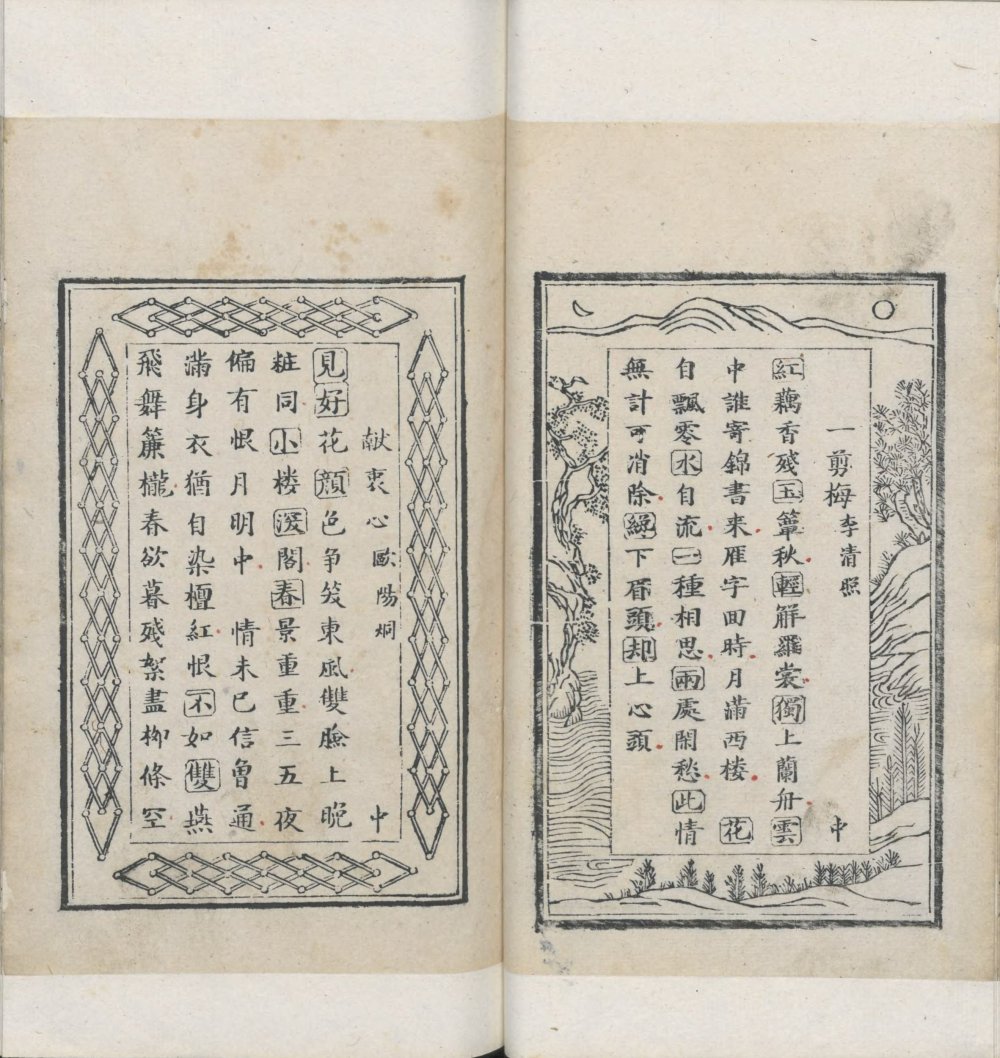 一剪梅李清照 中
紅藕香殘玉簟秋輕解羅裳獨上蘭舟雲
中誰寄錦書来雁字囬時月滿西楼 花
自飄零水自流一種相思兩處閑愁此情
無計可消除纔下眉頭却上心頭
献衷心歐陽炯 中
見好花顔色争笑東風雙臉上晩
粧同小楼深閣春景重重三五夜
偏有恨月明中 情未已信曾通
滿身衣猶自染檀紅恨不如雙燕
飛舞簾櫳春欲暮殘絮盡柳條空